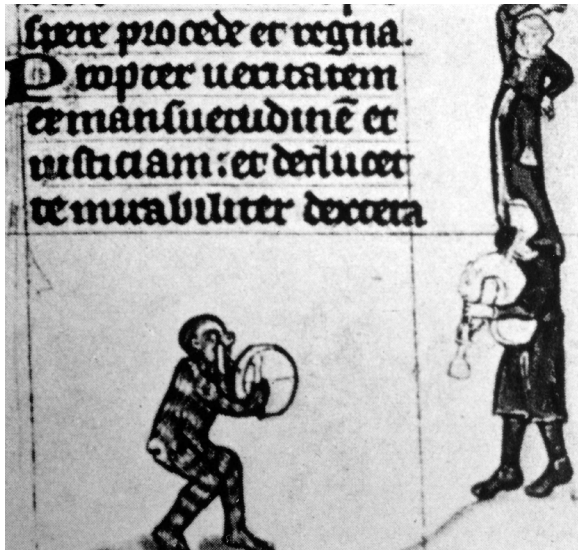 spere procede et regna.
Propter ueritatem
et mansuetudinē et
iusticiam : et deducet
te mirabiliter dextera